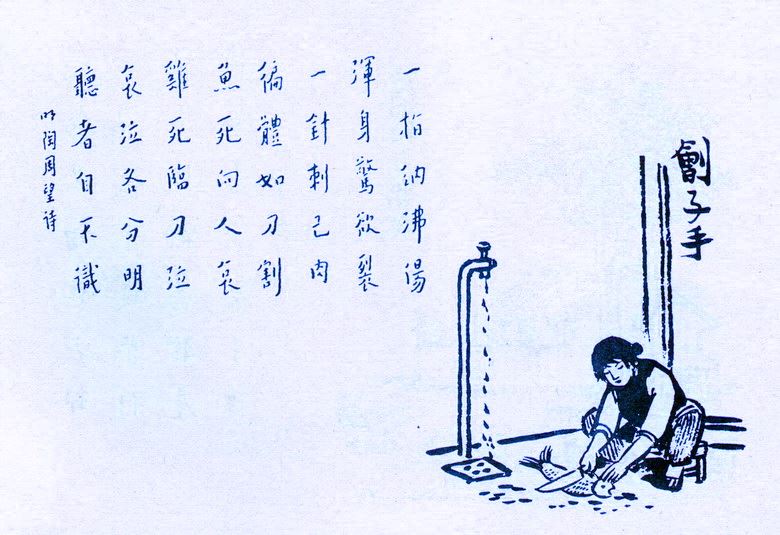 劊子手
一指納沸湯
渾身驚欲裂
一針刺己肉
徧體如刀割
魚死向人哀
雞死臨刀泣
哀泣各分明
聽者自不識
明陶周望詩